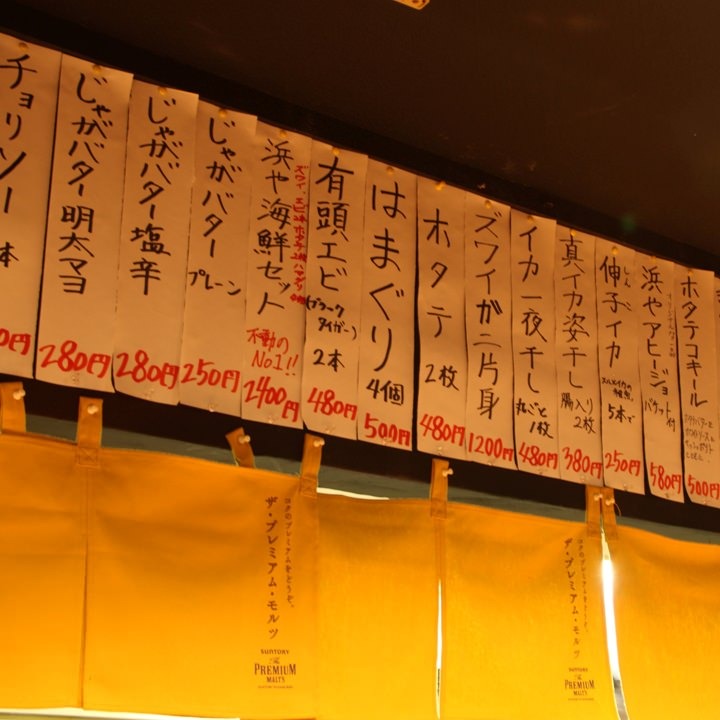 ホタテコキール
500円
浜やアヒージョ
バケット付
580円
伸子イカ
しんこ
5本で
250円
真イカ姿干し
腸入り
2枚
380円
イカ一夜干し
丸ごと
1枚
480円
ズワイガニ片身
1200円
ホタテ
2枚
480円
はまぐり
4個
500円
有頭エビ
(ブラック
タイガー)
2本
480円
浜や海鮮セット
不動の
No.1!!
2400円
じゃがバター
プレーン
250円
じゃがバター塩辛
280円
じゃがバター明太マヨ
280円
チョリソー
本
0円
コクのプレミアムをどうぞ。
ザ・プレミアム・モルツ
SUNTORY
The
PREMIUM
MALT'S
コクのプレミアムをどうぞ。
ザ・プレミアム・モルツ
SUNTORY
The
PREMIUM
MALT'S